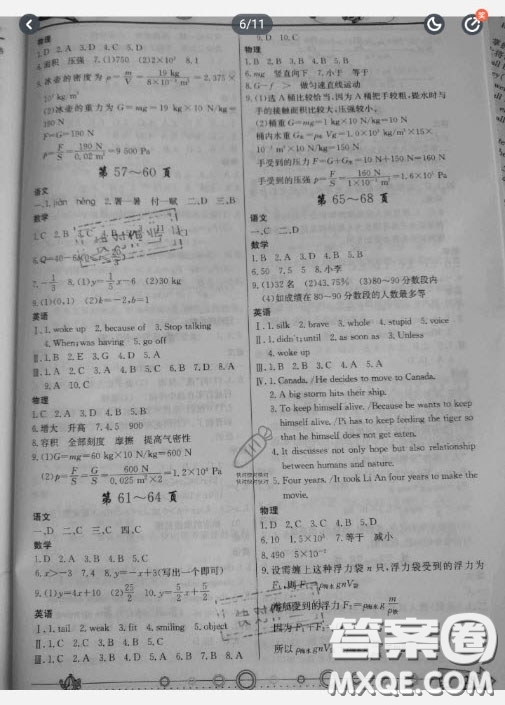 6/11
物理
1. D 2. A 3. D 4. C 5. D
6. 面积 压强 7. (1)750 (2)2×10³ 8. 1
9. 冰壶的密度为 ρ=m/V=19 kg/8×10⁻³ m³=2.375×
10³ kg/m³
(2)冰壶的重力为 G=mg=19 kg×10 N/kg=
190 N
F=G=190 N
p=F/S=190 N/0.02 m²=9 500 Pa
第 57~60 页
语文
一、1. jiàn héng 2. 署—暑 付—赋 二、D 三、B
数学
1. C 2. B
6. Q=40-6t
7. -1/3 8. (1)y=1/5x-6 (2)30 kg
9. (1)(0,1) (2)k=-2,b=1
英语
Ⅰ. 1. woke up 2. because of 3. Stop talking
4. When; was having 5. go off
Ⅱ. 1. B 2. E 3. G 4. D 5. A
Ⅲ. 1. B 2. D 3. A 4. C 5. C 6. B 7. D 8. A
9. A 10. C
物理
1. C 2. A 3. D 4. B 5. B
6. 增大 升高 7. 4.5 900
8. 容积 全部刻度 摩擦 提高气密性
9. (1)G=mg=60 kg×10 N/kg=600 N
(2)p=F/S=G/S=600 N/0.025 m²×2=1.2×10⁴ Pa
第 61~64 页
语文
一、D 二、C 三、C 四、C
数学
1. D 2. A 3. B 4. B 5. C
6. x>-3 7. 4 8. y=-x+3(写出一个即可)
9. (1)y=4x+10 (2)25/2 10. y=5/2x+5/2
英语
Ⅰ. 1. tail 2. weak 3. fit 4. smiling 5. object
Ⅱ. 1. C 2. C 3. B 4. D 5. C
Ⅲ. 1. C 2. B 3. A 4. D 5. A 6. B 7. B 8. A
9. D 10. C
物理
1. B 2. B 3. B 4. B 5. B
6. mg 竖直向下 7. 小于 等于
8. G-f > 做匀速直线运动
9. (1)选 A 桶比较恰当,因为 A 桶把手较粗,提水时与
手的接触面积比较大,压强较小。
(2)桶重 G=mg=1 kg×10 N/kg=10 N
桶内水重 G水=ρ水Vg=1.0×10³ kg/m³×15×
10⁻³ m³×10 N/kg=150 N
手受到的压力 F=G+G水=10 N+150 N=160 N
手受到的压强 p=F/S=160 N/1×10⁻³ m²=1.6×10⁵ Pa
第 65~68 页
语文
一、C 二、D
数学
1. B 2. B 3. D 4. B 5. B
6. 50 7. 5 5 8. 小李
9. (1)32 名 (2)43.75% (3)80~90 分数段内
(4)如成绩在 80~90 分数段的人数最多等
英语
Ⅰ. 1. silk 2. brave 3. whole 4. stupid 5. voice
Ⅱ. 1. didn't; until 2. as soon as 3. Unless
4. woke up
Ⅲ. 1. B 2. B 3. C 4. A 5. A
Ⅳ. 1. Canada. /He decides to move to Canada.
2. A big storm hits their ship.
3. To keep himself alive. /Because he wants to keep
himself alive. /Pi has to keep feeding the tiger so
that he himself does not get eaten.
4. It discusses not only hope but also relationship
between humans and nature.
5. Four years. /It took Li An four years to make the
movie.
物理
1. D 2. C 3. C 4. B 5. B
6. 10 1.5×10⁴ 7. 等于 减小
8. 490 5×10⁻²
9. 设需缠上这种浮力袋 n 只,浮力袋受到的浮力为
F₁,则 F₁=ρ海水gnV袋
受到的浮力 F₂=ρ海水g
因为 F₁+F₂
所以 ρ海水gnV袋
答案圈
MXQE.COM